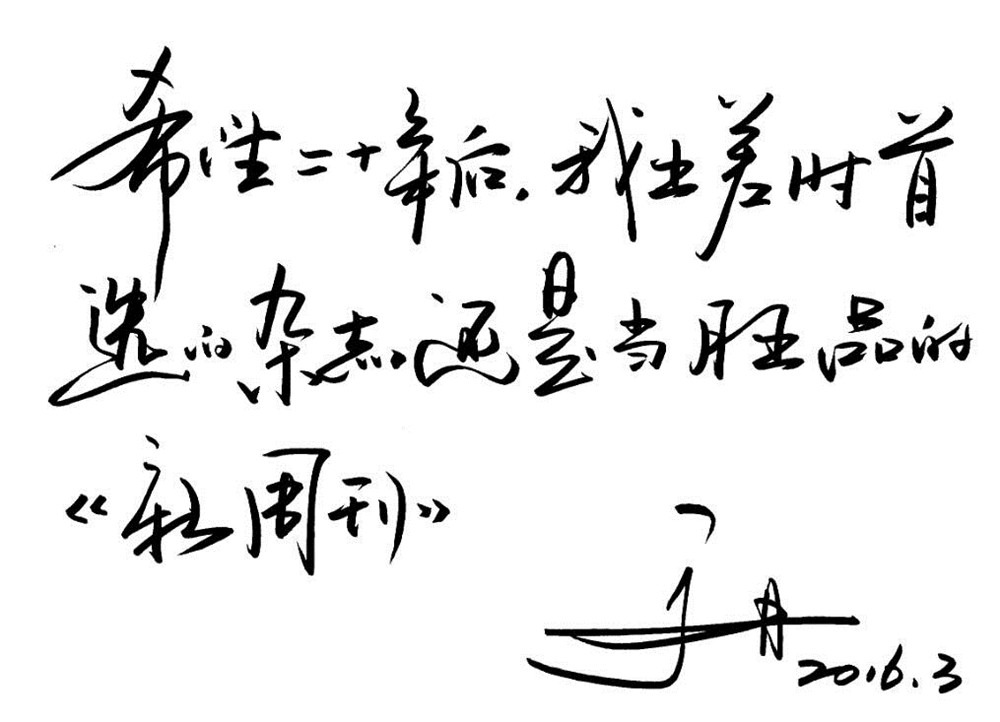 希望二十年后，我出差时首
选的杂志还是当旺品的
《新周刊》
于丹
2016.3